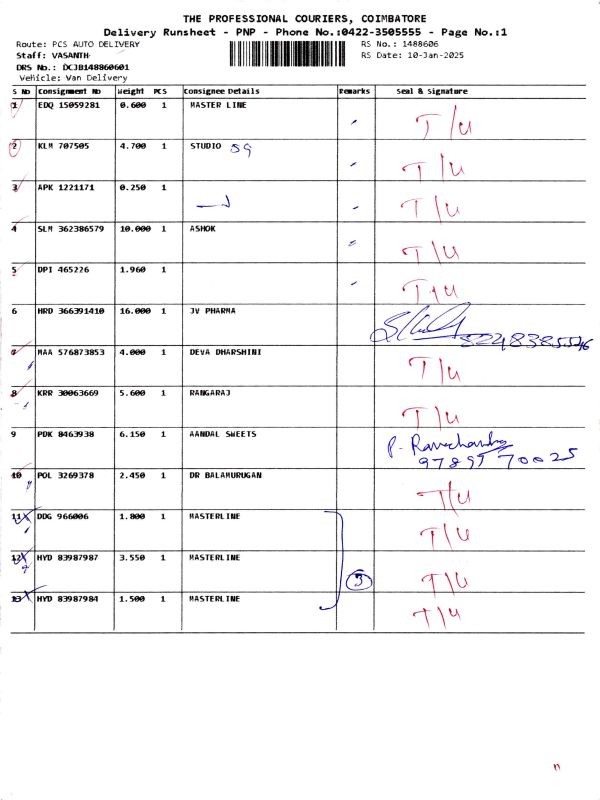 THE PROFESSIONAL COURIERS, COIMBATORE
Delivery Runsheet - PNP - Phone No.:0422-3505555 - Page No.:1
Route: PCS AUTO DELIVERY RS No.: 1488606
Staff: VASANTH RS Date: 10-Jan-2025
DRS No.: DCJB148860601
Vehicle: Van Delivery
S No Consignment No Weight PCS Consignee Details Remarks Seal & Signature
1 EDQ 15059281 0.600 1 MASTER LINE T/U
2 KLM 707505 4.700 1 STUDIO 59 T/U
3 APK 1221171 0.250 1 T/U
4 SLM 362386579 10.000 1 ASHOK T/U
5 DPI 465226 1.960 1 T/U
6 HRD 366391410 16.000 1 JV PHARMA
7 MAA 576873853 4.000 1 DEVA DHARSHINI T/U
8 KRR 30063669 5.600 1 RANGARAJ T/U
9 PDK 8463938 6.150 1 AANDAL SWEETS P. Ramachandra
97895 70025
10 POL 3269378 2.450 1 DR BALAMURUGAN T/U
11 DDG 966006 1.800 1 MASTERLINE T/U
12 HYD 83987987 3.550 1 MASTERLINE 3 T/U
13 HYD 83987984 1.500 1 MASTERLINE T/U